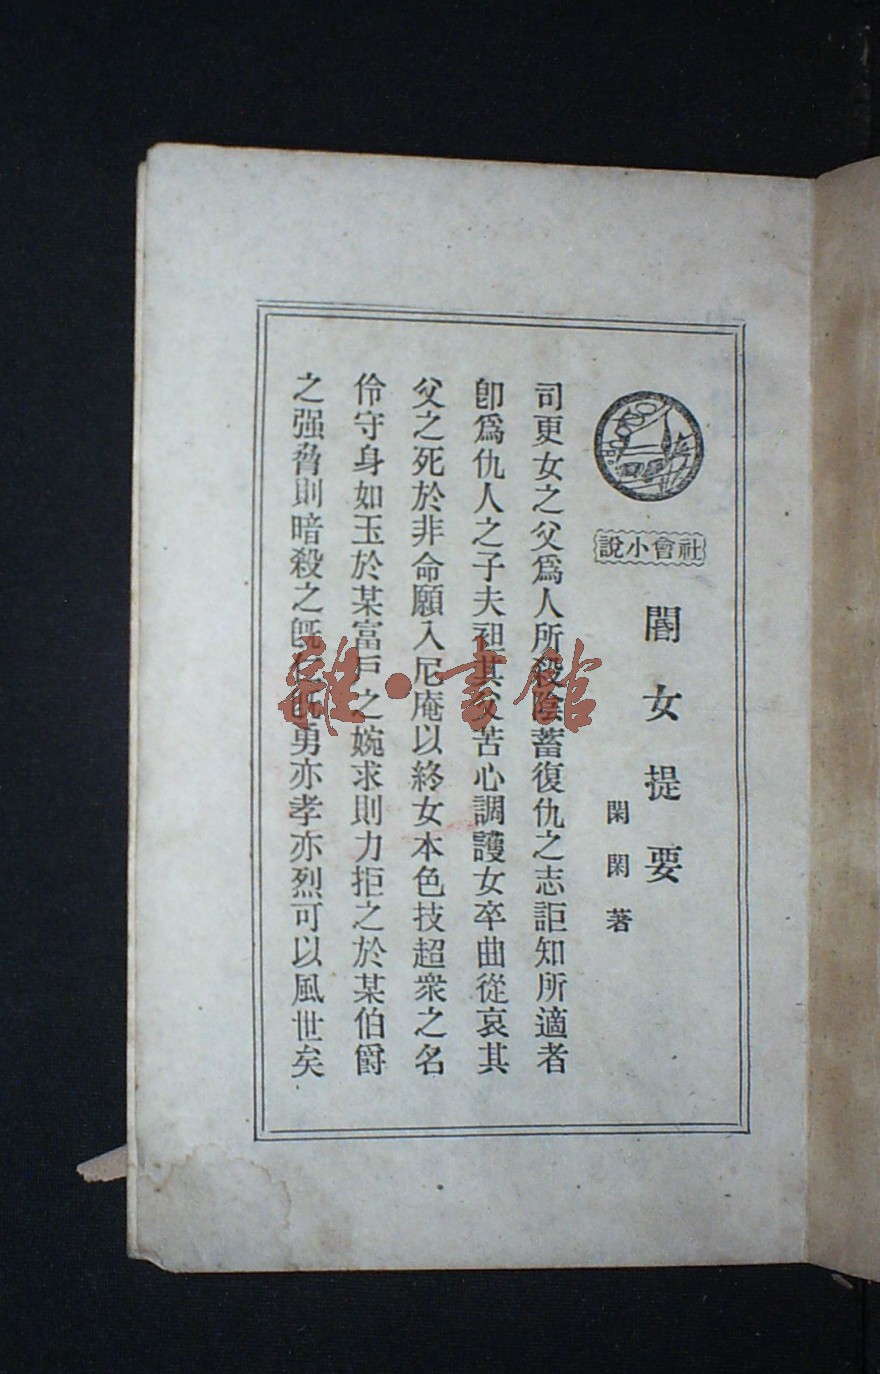 社會小說
闇女提要
閑閑著
司更女之父爲人所殺陰蓄復仇之志詎知所適者
卽爲仇人之子夫袒其父苦心調護女卒曲從哀其
父之死於非命願入尼庵以終女本色技超衆之名
伶守身如玉於某富戶之婉求則力拒之於某伯爵
之强脅則暗殺之旣仁旣勇亦孝亦烈可以風世矣
雜·書館